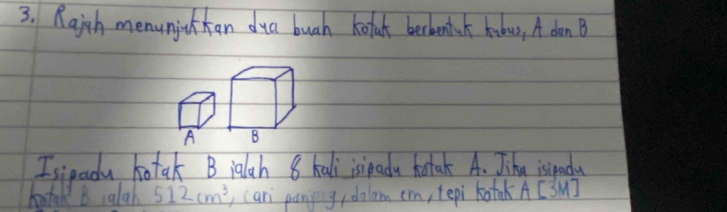 3. Rajah menunjukkan dua buah kotak berbentuk kubus, A dan B
A B
Isipadu kotak B ialah 8 kali isipadu kotak A. Jika isipadu
kotak B ialah 512 cm³, cari panjang, dalam cm, tepi kotak A [3M]